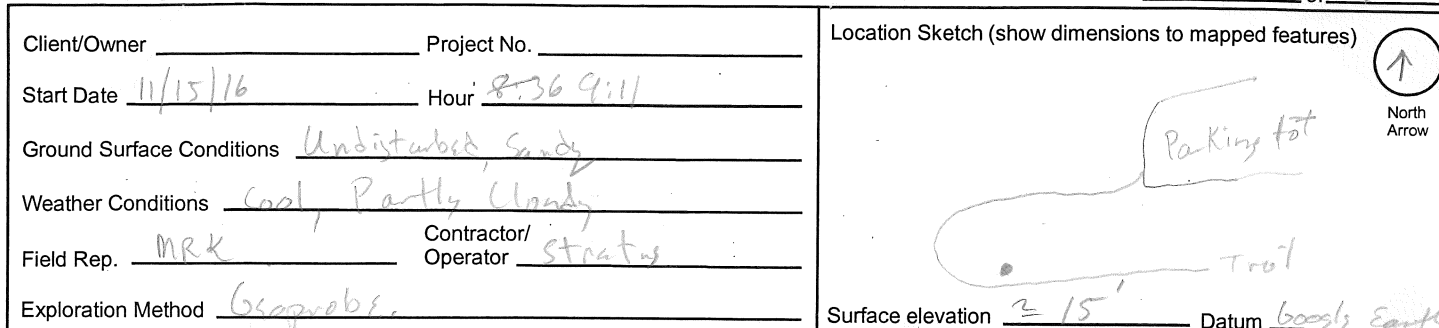 Client/Owner Project No.
Start Date 11/15/16 Hour 8:36 9:11
Ground Surface Conditions Undisturbed, Sandy
Weather Conditions Cool, Partly Cloudy
Field Rep. MRK Contractor/
Operator Stratus
Exploration Method Geoprobe.
Location Sketch (show dimensions to mapped features)
North
Arrow
Parking lot
Trail
Surface elevation ≈ 15' Datum Google Earth